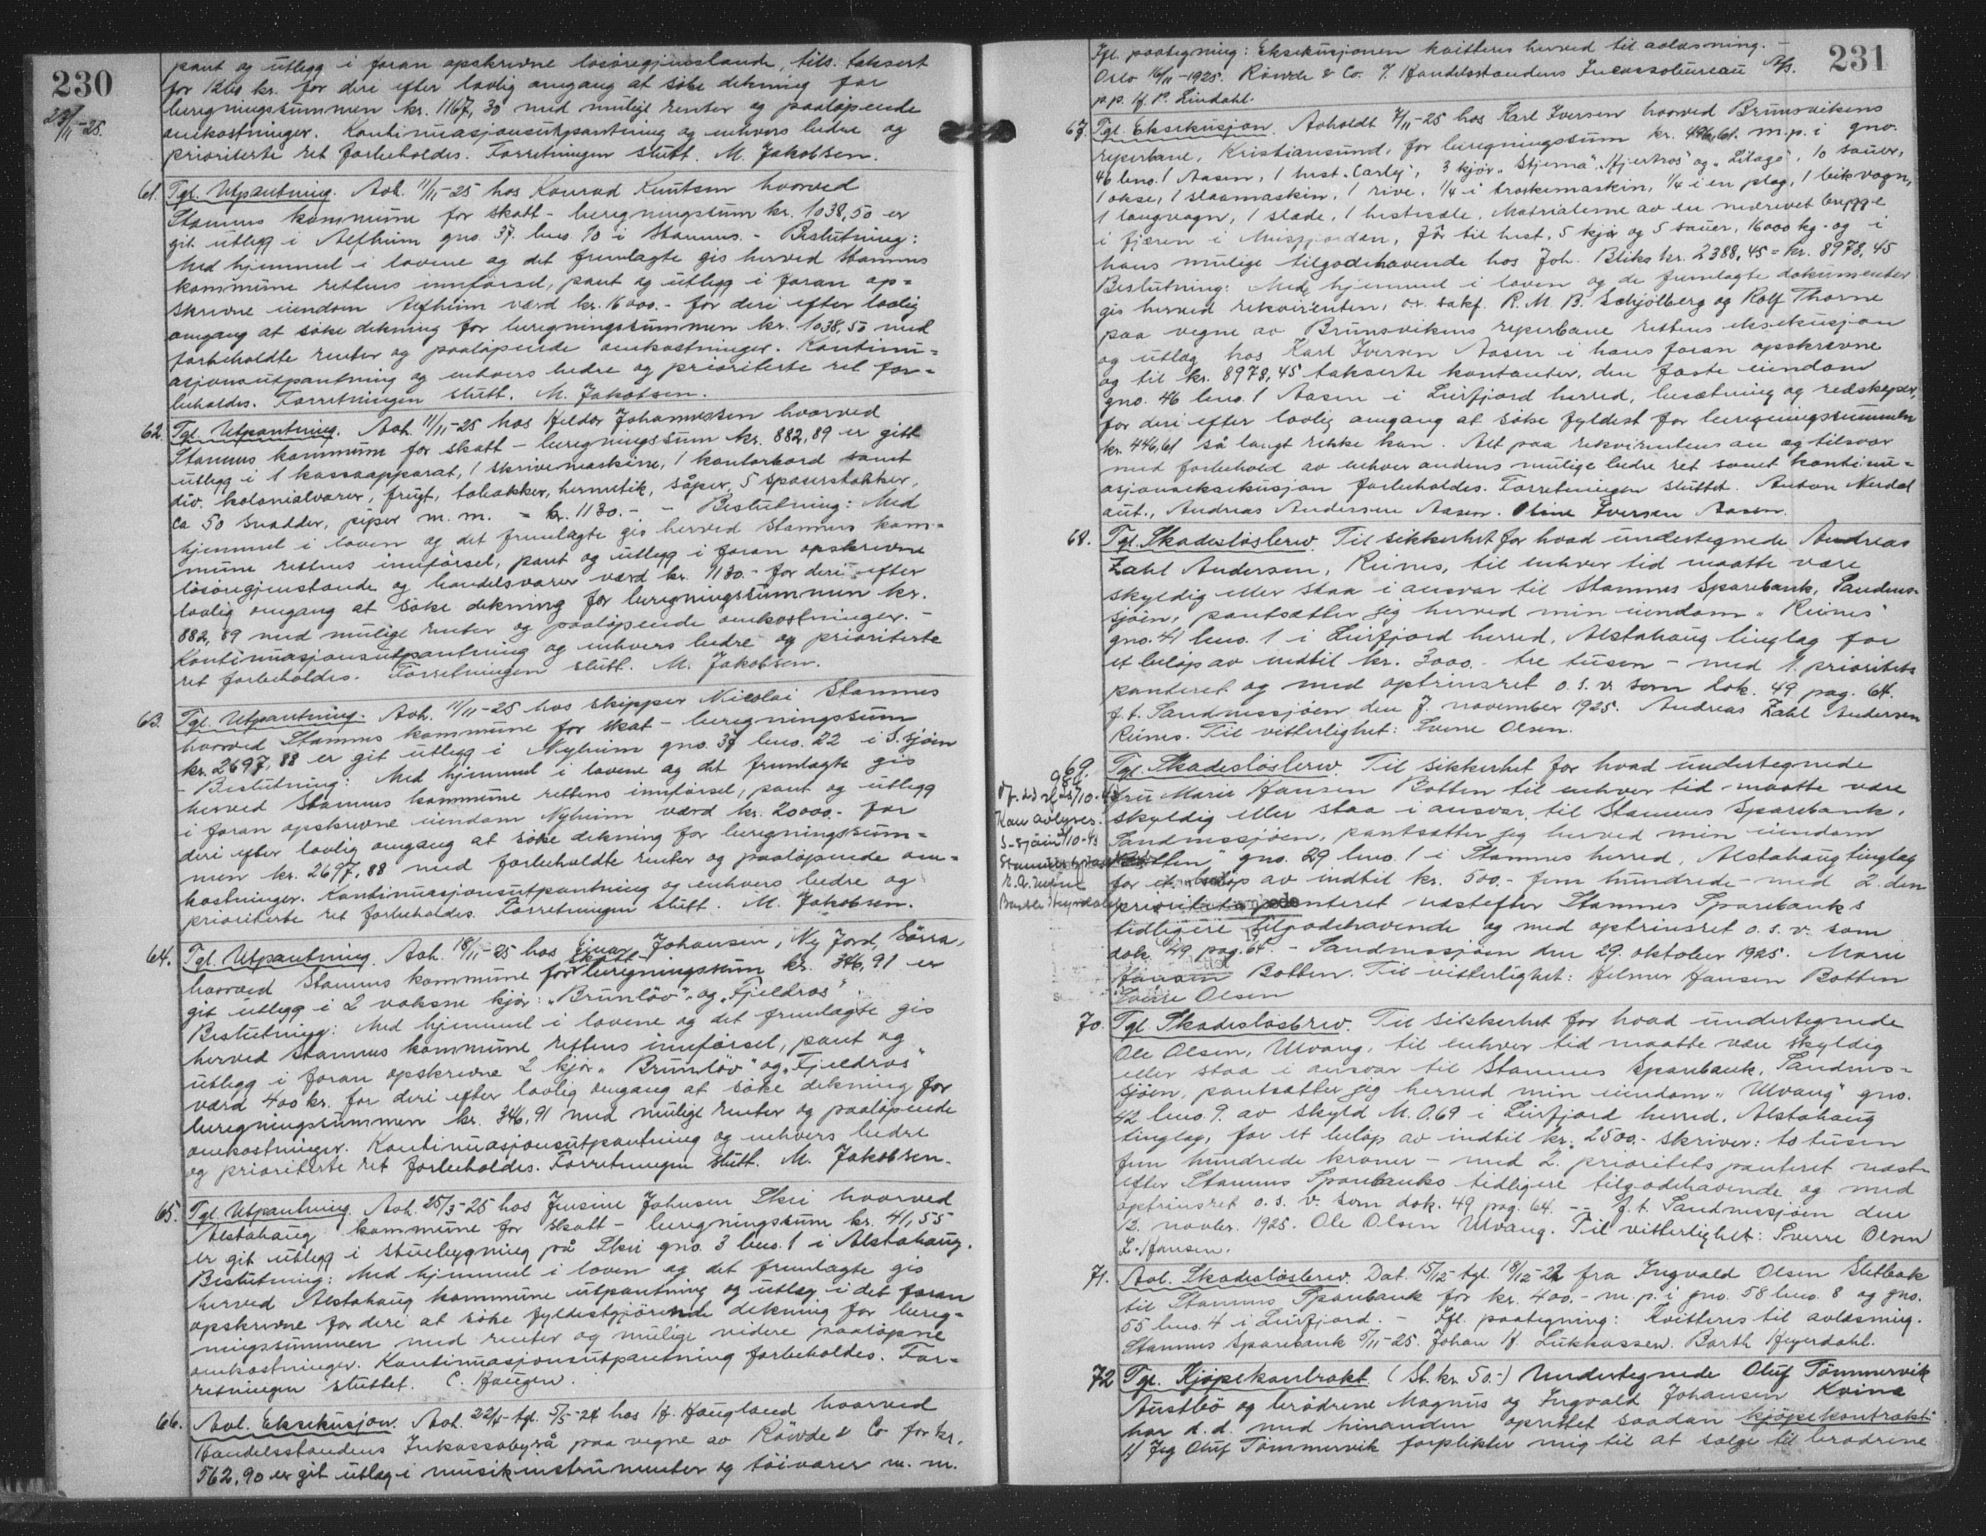 230
23/11-25.
pant og utlegg i foran opskrevne løsøregjenstande, tils. taksert
for 1200 kr. for deri efter lovlig omgang at søke dekning for
beregningssummen kr. 1167,30 med mulige renter og paaløpende
omkostninger. Kontinuasjonsutpantning og enhvers bedre og
prioriterte ret forbeholdes. Forretningen slutt. M. Jakobsen.
61. Tgl. Utpantning. Avh. 11/11-25 hos Konrad Knutsen hvorved
Stamnes kommune for skatt - beregningssum kr. 1038,50 er
git utlegg i Alfheim gno. 37 bno. 10 i Stamnes. - Beslutning:
Med hjemmel i lovene og det fremlagte gis herved Stamnes
kommune rettens innførsel, pant og utlegg i foran op-
skrevne eiendom Alfheim værd kr. 16000.- for deri efter lovlig
omgang at søke dekning for beregningssummen kr. 1038,50 med
forbeholdte renter og paaløpende omkostninger. Kontinu-
asjonsutpantning og enhvers bedre og prioriterte ret for-
beholdes. Forretningen slutt. M. Jakobsen.
62. Tgl. Utpantning. Avh. 11/11-25 hos Heldor Johannessen hvorved
Stamnes kommune for skatt - beregningssum kr. 882,89 er gitt
utlegg i 1 kassaapparat, 1 skrivemaskine, 1 kontorbord samt
div. kolonialvarer, frugt, tobakker, hermetik, såper, 5 spaserstokker,
ca 50 snadder, piper m. m. = kr. 1130.- - Beslutning: Med
hjemmel i loven og det fremlagte gis herved Stamnes kom-
mune rettens innførsel, pant og utlegg i foran opskrevne
løsøregjenstande og handelsvarer værd kr. 1130.- for deri efter
lovlig omgang at søke dekning for beregningssummen kr.
882,89 med mulige renter og paaløpende omkostninger. -
Kontinuasjonsutpantning og enhvers bedre og prioriterte
ret forbeholdes. Forretningen slutt. M. Jakobsen.
63. Tgl. Utpantning. Avh. 11/11-25 hos skipper Nicolai Stamnes
hvorved Stamnes kommune for skat - beregningssum
kr. 2697,88 er git utlegg i Nyheim gno. 37 bno. 22 i S.sjøen
- Beslutning: Med hjemmel i lovene og det fremlagte gis
herved Stamnes kommune rettens innførsel, pant og utlegg
i foran opskrevne eiendom Nyheim værd kr. 20000.- for
deri efter lovlig omgang at søke dekning for beregningssum-
men kr. 2697,88 med forbeholdte renter og paaløpende om-
kostninger. Kontinuasjonsutpantning og enhvers bedre og
prioriterte ret forbeholdes. Forretningen slutt. M. Jakobsen.
64. Tgl. Utpantning. Avh. 18/11-25 hos Einar Johansen, Ny Jord, Sørra,
hvorved Stamnes kommune for skatt beregningssum kr. 346,91 er
git utlegg i 2 voksne kjør: "Brunløv" og "Fjeldros".
Beslutning: Med hjemmel i lovene og det fremlagte gis
herved Stamnes kommune rettens innførsel, pant og
utlegg i foran opskrevne 2 kjør "Brunløv" og "Fjeldros"
værd 400 kr. for deri efter lovlig omgang at søke dekning for
beregningssummen kr. 346,91 med mulige renter og paaløpende
omkostninger. Kontinuasjonsutpantning og enhvers bedre
og prioriterte ret forbeholdes. Forretningen slutt. M. Jakobsen.
65. Tgl. Utpantning. Avh. 25/3-25 hos Jensine Johnsen Skei hvorved
Alstahaug kommune for skatt - beregningssum kr. 41,55
er git utlegg i stuebygning på Skei gno. 3 bno. 1 i Alstahaug.
Beslutning: Med hjemmel i loven og det fremlagte gis
herved Alstahaug kommune utpantning og utlæg i det foran
opskrevne for deri at søke fyldestgjørende dekning for bereg-
ningssummen med renter og mulige videre paaløpne
omkostninger. Kontinuasjonsutpantning forbeholdes. For-
retningen sluttet. C. Haugen.
66. Avl. Eksekusjon. Avh. 22/4- tgl. 5/5-24 hos H. Haugland hvorved
Handelsstandens Inkassobyrå paa vegne av Røwde & Co for kr.
562,90 er git utlæg i musikinstrumenter og tøivarer m. m.
231
Ifl. paategning: Eksekusjonen kvitteres herved til avlæsning. -
Oslo 16/11-1925. Røwde & Co. F. Handelsstandens Incassobureau A/s.
p.p. H. P. Lindahl.
67. Tgl. Eksekusjon. Avholdt 7/11-25 hos Karl Iversen hvorved Brunsvikens
reperbane, Kristiansund, for beregningssum kr. 446,61 m.p. i gno.
46 bno. 1 Aasen, 1 hest "Carley", 3 kjør "Stjerna", "Hjertros" og "Litago", 10 sauer,
1 okse, 1 slaamaskin, 1 rive, 1/4 i træskemaskin, 1/4 i en plog, 1 leikvogn,
1 langvogn, 1 slæde, 1 hestesæle, Matrialerne av en nedrevet brygge
i fjæren i Meisfjorden, fôr til hest, 5 kjør og 5 sauer, 16000 kg. og i
hans mulige tilgodehavende hos Joh. Bliks kr. 2388,45 = kr. 8978,45
Beslutning: Med hjemmel i loven og de fremlagte dokumenter
gis herved rekvirenten, o.r. sakf. R. M. B. Schjølberg og Rolf Thorne
paa vegne av Brunsvikens reperbane rettens eksekusjon
og utlæg hos Karl Iversen Aasen i hans foran opskrevne
og til kr. 8978,45 takserte kontanter, den faste eiendom
gno. 46 bno. 1 Aasen i Leirfjord herred, besætning og redskaper,
for deri efter lovlig omgang at søke fyldest for beregningssummen
kr. 446,61 så langt rekke kan. Alt paa rekvirentens an og tilsvar
med forbehold av enhver andens mulige bedre ret samt kontinu-
asjonseksekusjon forbeholdes. Forretningen sluttet. Anton Nerdal
aut., Andreas Andersen Aasen. Oline Iversen Aasen.
68. Tgl. Skadesløsbrev. Til sikkerhet for hvad undertegnede Andreas
Zahl Andersen, Reines, til enhver tid maatte være
skyldig eller staa i ansvar til Stamnes Sparebank, Sandnes-
sjøen, pantsætter jeg herved min eiendom "Reines"
gno. 41 bno. 1 i Leirfjord herred, Alstahaug tinglag for
et beløp av indtil kr. 3000.- tre tusen - med 1. prioritets
panteret og med optrinsret o.s.v. som dok. 49 pag. 64.
p.t. Sandnessjøen den 7. november 1925. Andreas Zahl Andersen
Reines. Til vitterlighet: Sverre Olsen.
69. Tgl. Skadesløsbrev. Til sikkerhet for hvad undertegnede
fru Marie Hansen Botten til enhver tid maatte være
skyldig eller staa i ansvar til Stamnes Sparebank,
Sandnessjøen, pantsætter jeg herved min eiendom
"Botten" gno. 29 bno. 1 i Stamnes herred, Alstahaug tinglag
for et beløp av indtil kr. 500.- fem hundrede - med 2. den
prioritets panteret næstefter Stamnes Sparebanks
tidligere tilgodehavende og med optrinsret o.s.v. som
dok. 49 pag. 64. - Sandnessjøen den 29. oktober 1925. Marie
Hansen Botten. Til vitterlighet: Helmer Hansen Botten
Sverre Olsen
Kan avlyses.
70. Tgl. Skadesløsbrev. Til sikkerhet for hvad undertegnede
Ole Olsen, Ulvang, til enhver tid maatte være skyldig
eller staa i ansvar til Stamnes Sparebank, Sandnes-
sjøen, pantsætter jeg herved min eiendom "Ulvang" gno.
42 bno. 9. av skyld M. 0,69 i Leirfjord herred, Alstahaug
tinglag, for et beløp av indtil kr. 2500.- skriver: to tusen
fem hundrede kroner - med 2. prioritets panteret næst-
efter Stamnes Sparebanks tidligere tilgodehavende og med
optrinsret o.s.v. som dok. 49 pag. 64. - - p.t. Sandnessjøen den
12. novbr. 1925. Ole Olsen Ulvang. Til vitterlighet: Sverre Olsen
L. Hansen.
71. Avl. Skadesløsbrev. Dat. 15/12- tgl. 18/12-22 fra Ingvald Olsen Sletbak
til Stamnes Sparebank for kr. 400.- m.p. i gno. 58 bno. 8 og gno.
55 bno. 4 i Leirfjord. - Ifl. paategning: Kvitteres til avlæsning.
Stamnes Sparebank 5/11-25. Johan H. Lukkassen. Barth Heyerdahl.
72 Tgl. Kjøpekontrakt. (St. kr. 50.-) Undertegnede Oluf Tømmervik
Austbø og brødrene Magnus og Ingvald Johansen Kvina
har d. d. med hinanden oprettet saadan kjøpekontrakt:
1) Jeg Oluf Tømmervik forplikter mig til at sælge til brødrene